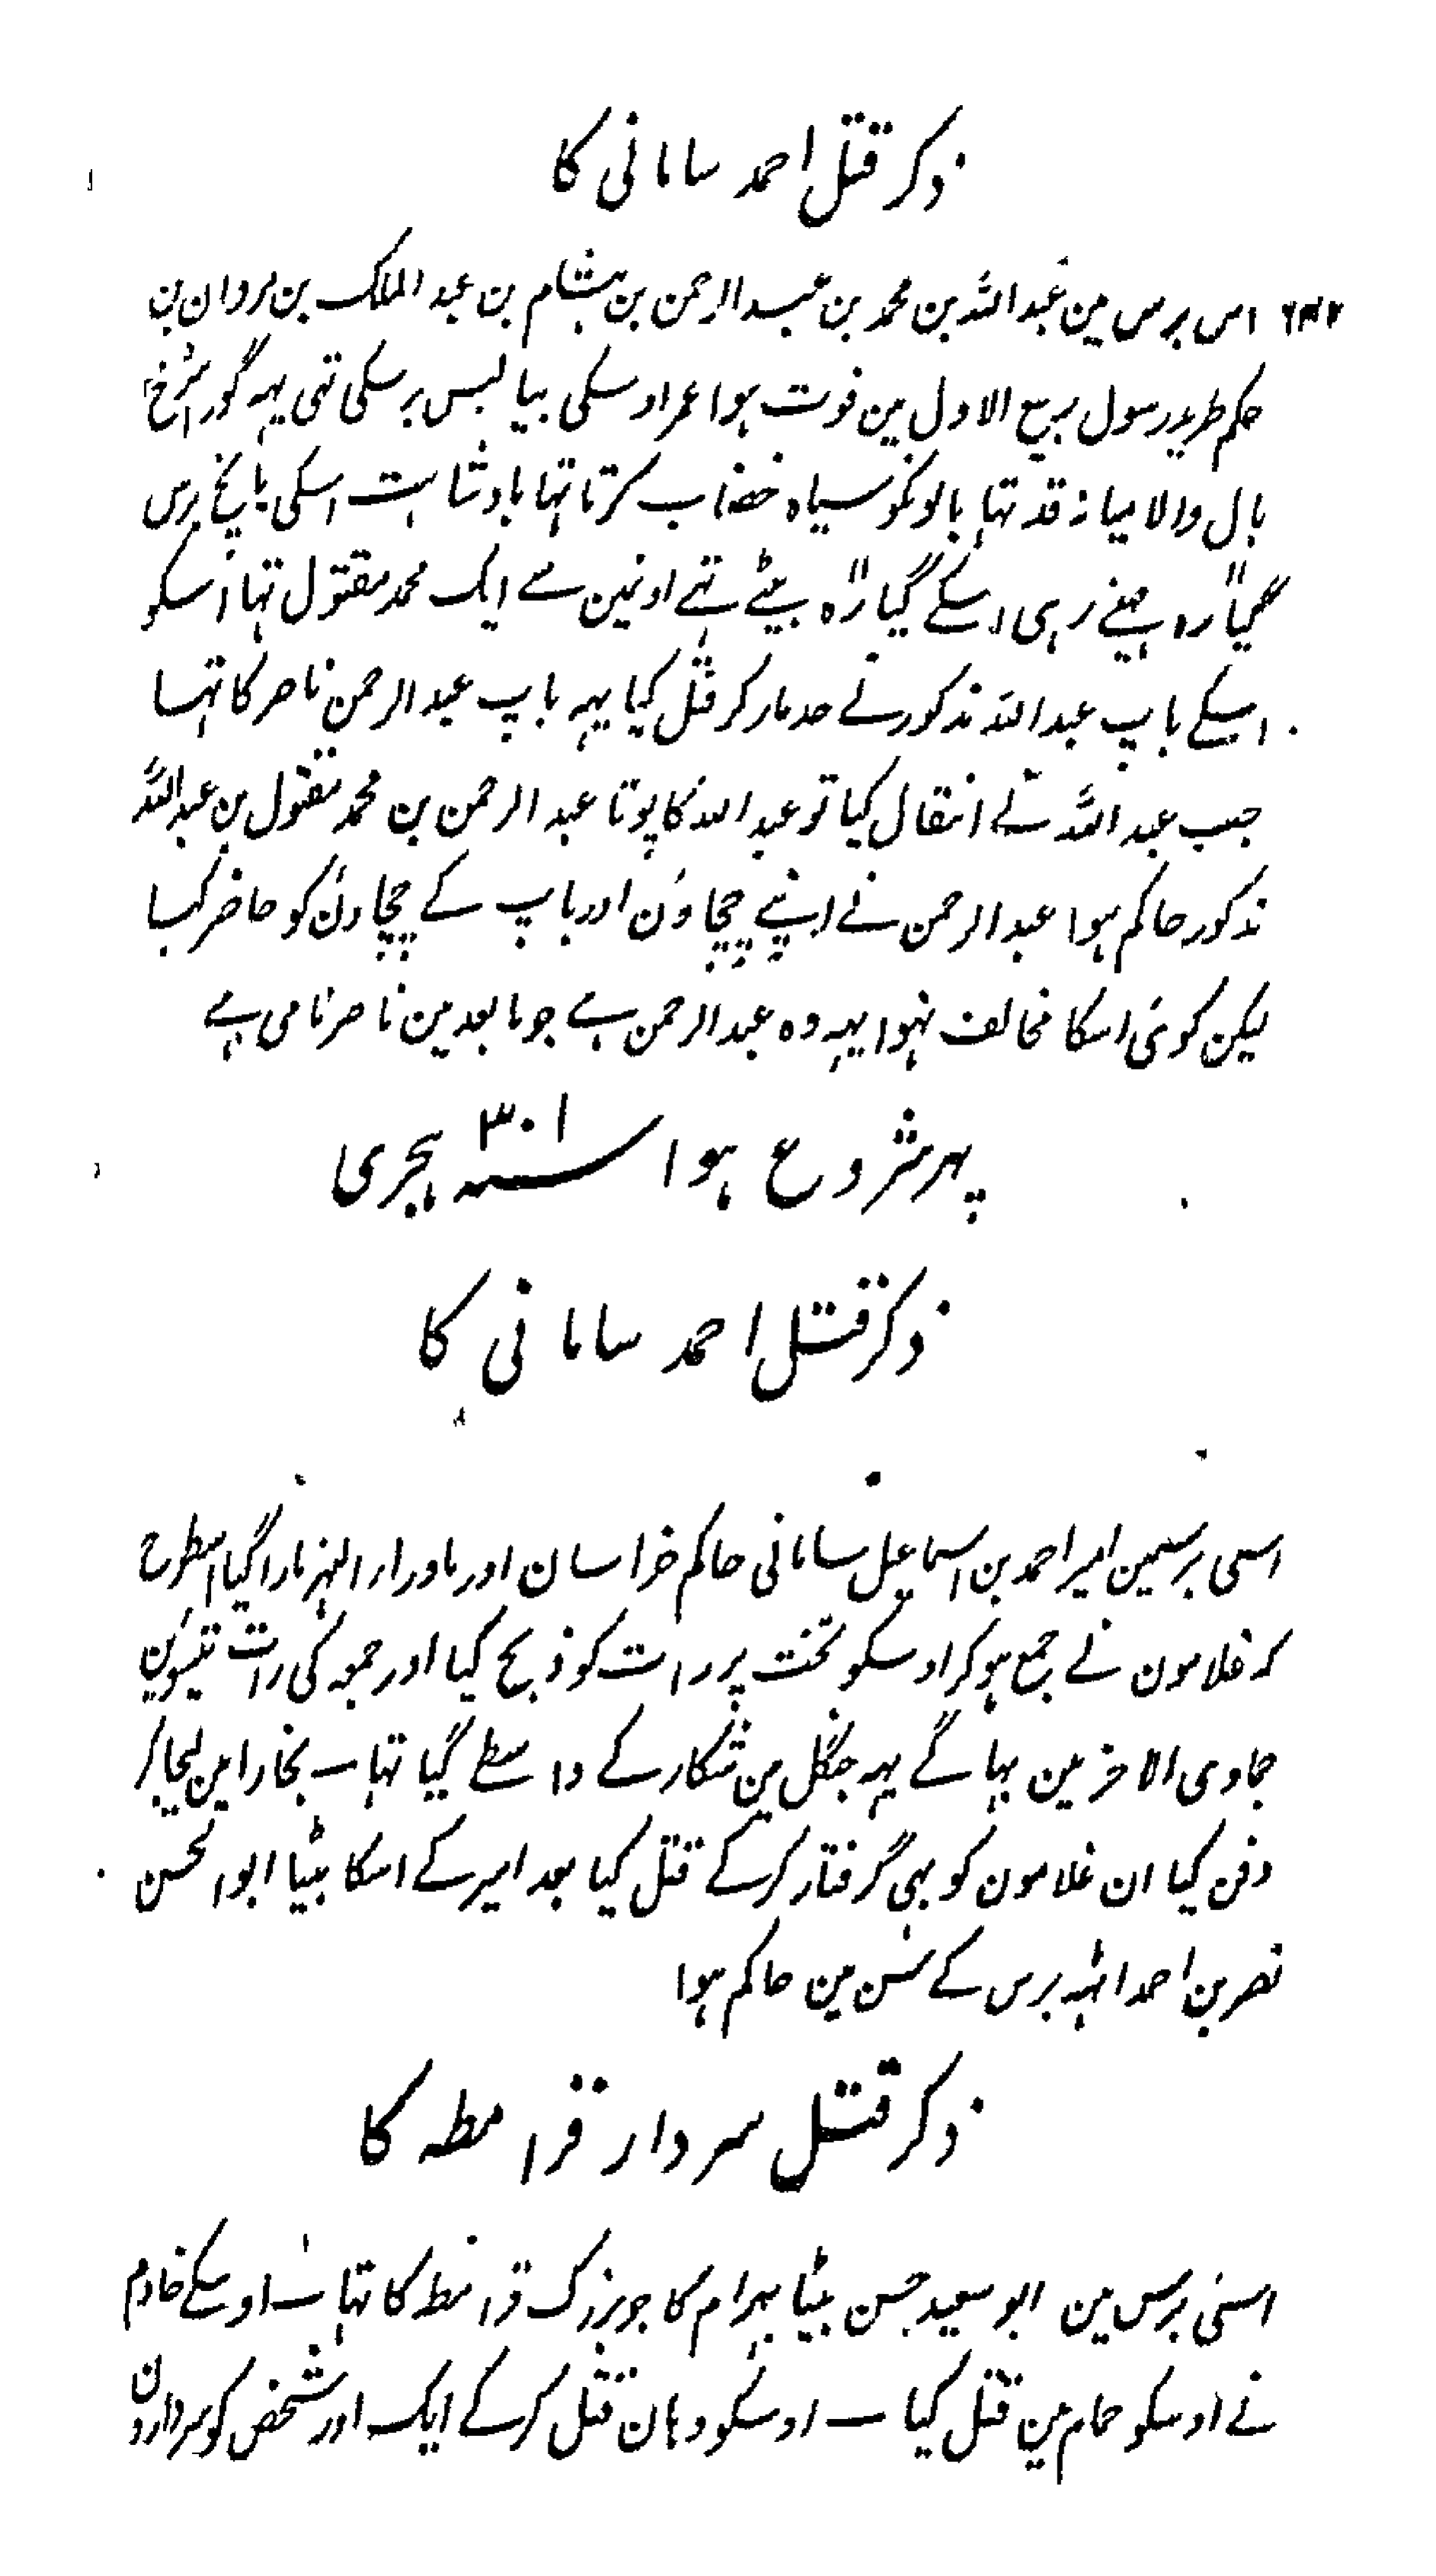 ذکر قتل احمد سامانی کا
اس برس مین عبداللہ بن محمد بن عبدالرحمن بن ہشام بن عبد الملک بن مروان بن
حکم طرید رسول ربیع الاول مین فوت ہوا عمر اوسکی بیالیس برسکی تہی یہہ گورا سُرخ
بال والا میانہ قد تہا بالونکو سیاہ خضاب کرتا تہا بادشاہت اسکی پانچ برس
گیارہ مہینے رہی اسکے گیارہ بیٹے تہے اونمین سے ایک محمد مقتول تہا اُسکو
اسکے باپ عبداللہ مذکور نے حد مار کر قتل کیا یہہ باپ عبدالرحمن ناصر کا تہا
جب عبداللہ نے انتقال کیا تو عبداللہ کا پوتا عبدالرحمن بن محمد مقتول بن عبداللہ
مذکور حاکم ہوا عبدالرحمن نے اپنے چچاؤن اور باپ کے چچاؤن کو حاضر کیا
لیکن کوئی اسکا مخالف نہوا یہہ وہ عبدالرحمن ہے جو مابعد مین ناصر نامی ہے
پہر شروع ہوا سنہ ۳۰۱ ہجری
ذکر قتل احمد سامانی کا
اسی برسمین امیر احمد بن اسماعیل سامانی حاکم خراسان اور ماوراء النہر مارا گیا اسطرح
کہ غلامون نے جمع ہو کر اوسکو تخت پر رات کو ذبح کیا اور جمعہ کی رات تئیسوین
جمادی الاخر مین بہاگے یہہ جنگل مین شکار کے واسطے گیا تہا۔ بخارا مین لیجا کر
دفن کیا ان غلامون کو بہی گرفتار کر کے قتل کیا بعد امیر کے اسکا بیٹا ابو الحسن
نصر بن احمد اٹہہ برس کے سن مین حاکم ہوا
ذکر قتل سردار قرامطہ کا
اسی برس مین ابو سعید حسن بیٹا بہرام کا جو بزرگ قرامطہ کا تہا۔ اوسکے خادم
نے اوسکو حمام مین قتل کیا۔ اوسکو وہان قتل کر کے ایک اور شخص کو سردارون